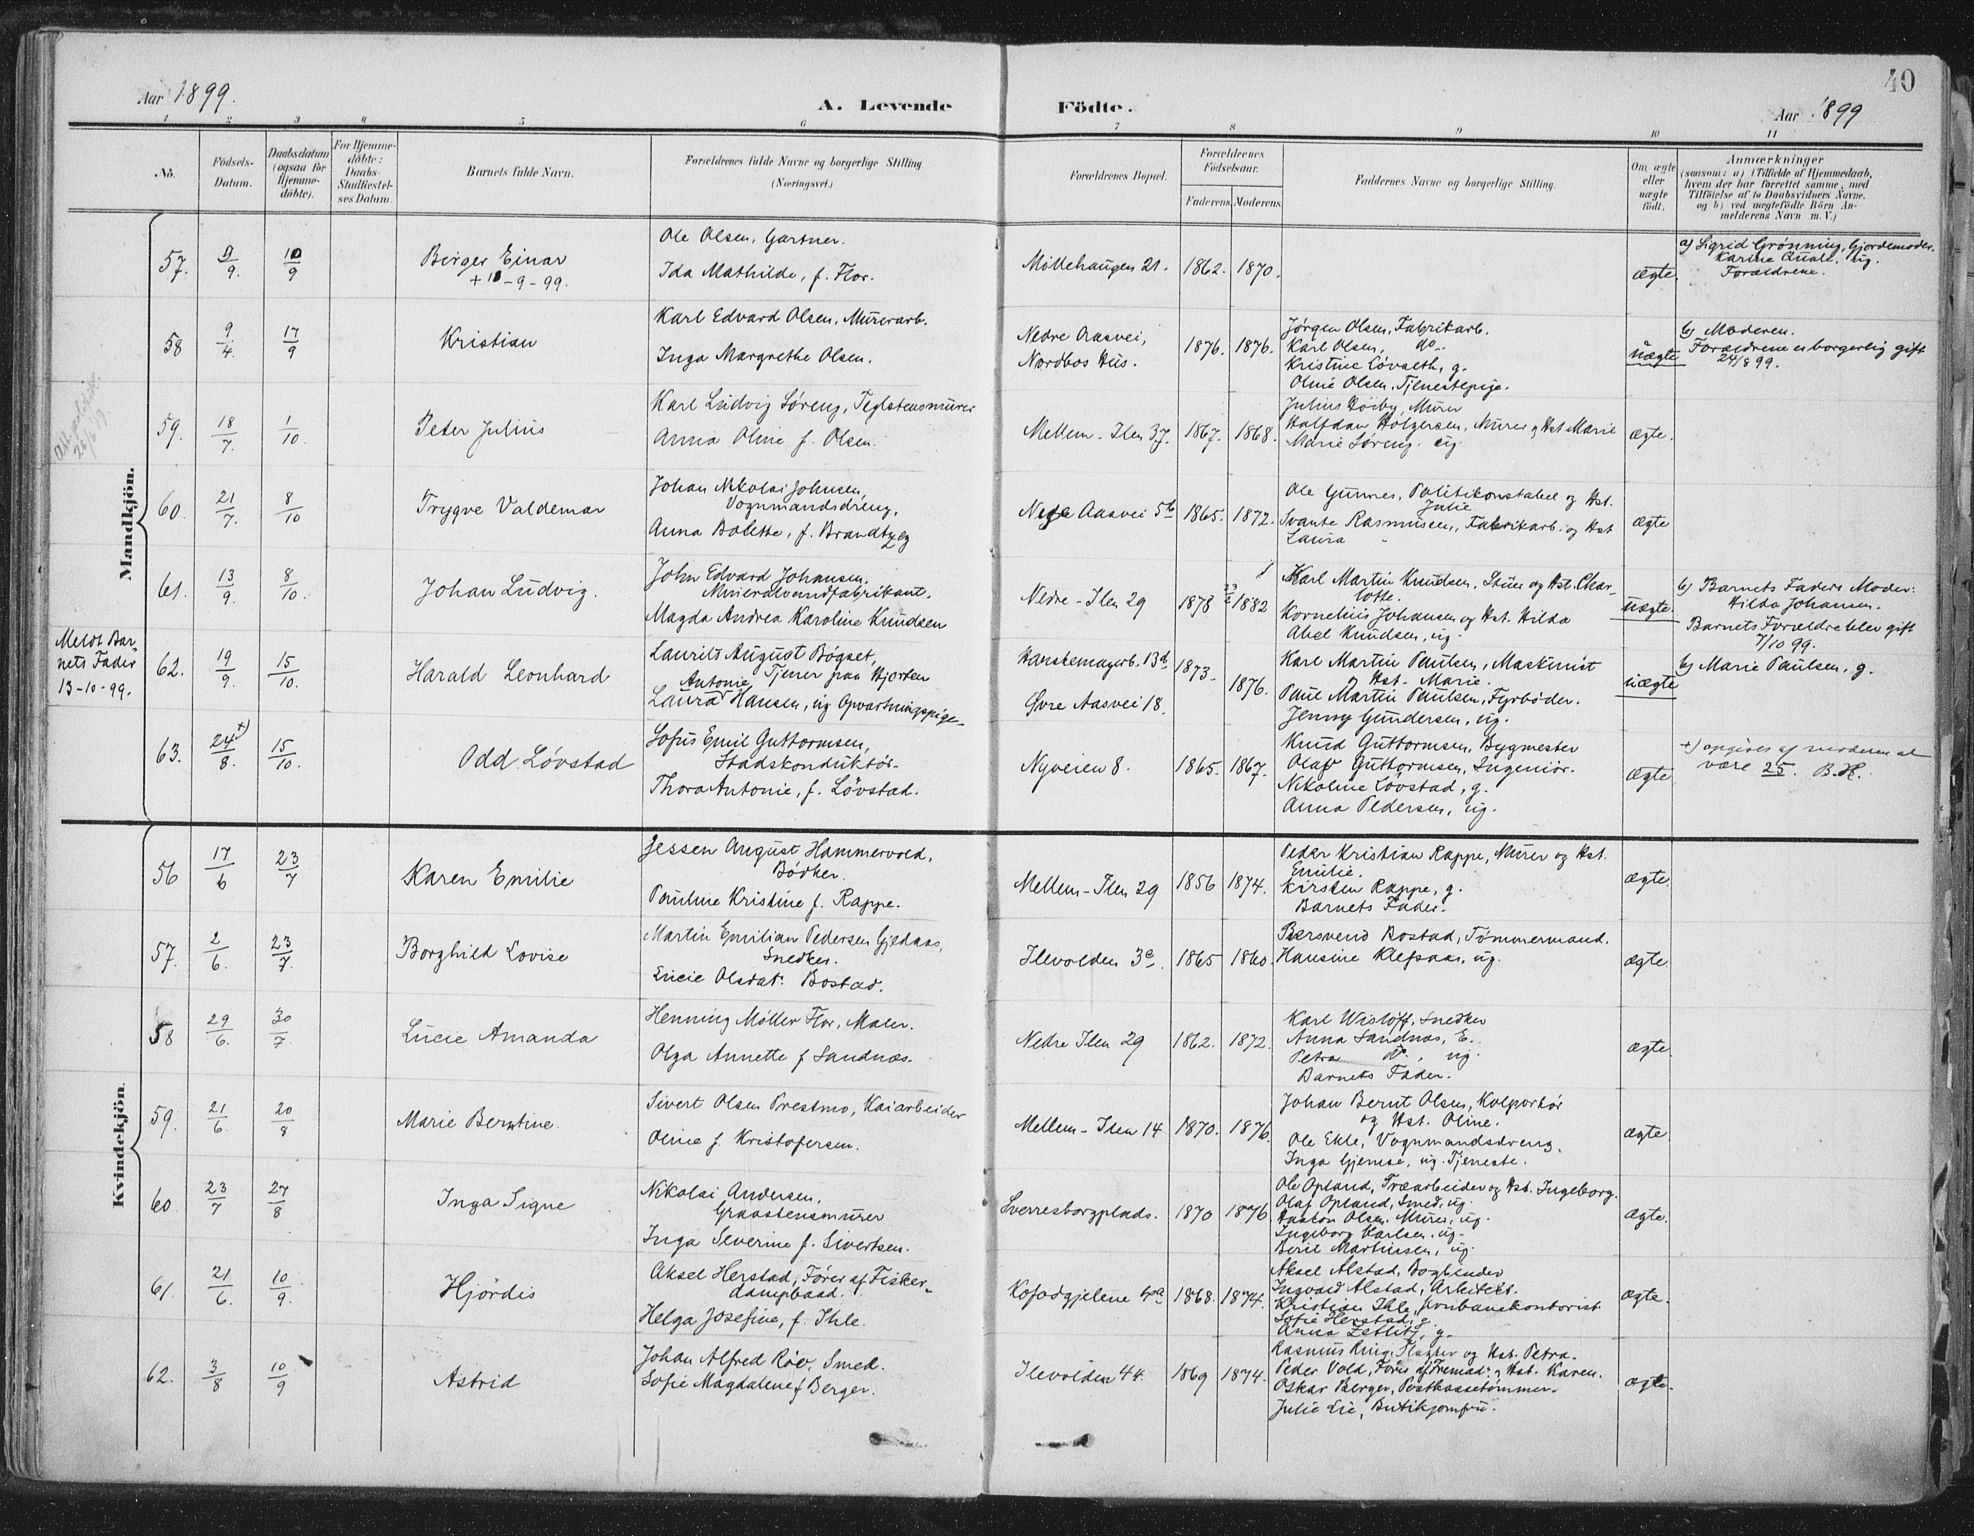 40
Aar 1899.
A. Levende Födte.
Aar 1899
1 2 3 4 5 6 7 8 9 10 11
No.
Födsels-
Datum.
Daabsdatum
(ogsaa för
Hjemme-
döbte).
For Hjemme-
döbte:
Daabs-
Stadfæstel-
ses Datum.
Barnets fulde Navn.
Forældrenes fulde Navne og borgerlige Stilling
(Næringsvei.)
Forældrenes Bopæl.
Forældrenes
Födselsaar.
Faderens. Moderens.
Faddernes Navne og borgerlige Stilling.
Om ægte
eller
uægte
född.
Anmærkninger
(saasom: a) i Tilfælde af Hjemmedaab,
hvem der har forrettet samme, med
Tilföielse af to Daabsvidners Navne.
og b) ved uægtefödte Börn An-
melderens Navn m. V.)
Mandkjön.
57. 9/9. 10/9
Birger Einar
+ 10-9-99.
Ole Olsen, Gartner.
Ida Mathilde, f. Flor.
Møllehaugen 21. 1862. 1870.
ægte.
a) Sigrid Grønning, Gjordemoder.
Karine Qvale, ug.
Forældrene.
58 9/4. 17/9
Kristian
Karl Edvard Olsen, Murerarb.
Inga Margrethe Olsen.
Nedre Aasvei,
Nordbos Hus.
1876. 1876.
Jørgen Olsen, Fabrikarb.
Karl Olsen, do.
Kristine Løvseth, g.
Oline Olsen, Tjenestepige.
uægte
b) Moderen.
Forældrene er borgerlig gift
24/8 99.
59. 18/7. 1/10.
Peter Julius
Karl Ludvig Søreng, Teglstensmurer
Anna Oline f. Olsen.
Mellem-Ilen 37. 1867. 1868.
Julius Doiby, Murer
Halfdan Holgersen, Murer og Hst Marie
Marie Søreng. ug.
ægte.
60. 21/7. 8/10
Trygve Valdemar
Johan Nikolai Johnsen,
Vognmandsdreng,
Anna Bolette, f. Brandtzeg
Nedre Aasvei 5b 1865. 1872.
Ole Gunnes, Politikonstabel og Hst.
Julie
Svante Rasmussen, Fabrikarb. og Hst
Laura
ægte
61. 13/9. 8/10.
Johan Ludvig.
John Edvard Johansen,
Mineralvandfabrikant.
Magda Andrea Karoline Knudsen
Nedre-Ilen 29 1878 23/2 1882
Karl Martin Knudsen, Stuer og Hst. Char-
lotte.
Kornelius Johansen og Hst. Hilda
Abel Knudsen, ug.
uægte.
b) Barnets Faders Moder:
Hilda Johansen.
Barnets Forældre blev gift
7/10 99.
Meldt Bar-
nets Fader
13-10-99.
62. 19/9. 15/10.
Harald Leonhard
Laurits August Bøgset,
Tjener paa Hjorten
Antonie
Laura Hansen, ug Opvartningspige.
Hanskemagerb. 13d 1873.
Øvre Aasvei 18. 1876.
Karl Martin Paulsen, Maskinist
og Hst. Marie.
Paul Martin Paulsen, Fyrbøder.
Jenny Gundersen, ug.
uægte
b) Marie Paulsen, g.
63. 24/8. +) 15/10.
Odd Løvstad
Sofus Emil Guttormsen,
Stadskonduktør.
Thora Antonie, f. Løvstad.
Nyveien 8. 1865. 1867.
Knud Guttormsen, Bygmester
Olaf Guttormsen, Ingeniør.
Nikoline Løvstad, g.
Anna Pedersen, ug.
ægte
+) opgives af moderen at
være 25. B.H.
Kvindekjön.
56 17/6 23/7
Karen Emilie
Jessen August Hammervold,
Bødker.
Pauline Kristine f. Rappe.
Mellem-Ilen 29 1856 1874.
Peder Kristian Rappe, Murer og Hst.
Emilie.
Kirsten Rappe, g.
Barnets Fader.
ægte.
57. 2/6. 23/7.
Borghild Lovise
Martin Emilian Pedersen Gjedaas,
Snedker.
Lucie Olsdat. Bostad.
Ilevolden 3c. 1865 1860.
Bersvend Bostad, Tømmermand.
Hansine Klefsaas, ug.
ægte.
58 29/6. 30/7.
Lucie Amanda
Henning Møller Flor, Maler.
Olga Annette f Sandnæs.
Nedre Ilen 29 1862. 1872.
Karl Wisløff, Snedker
Anna Sandnæs, E.
Petra do, ug.
Barnets Fader.
ægte.
59. 21/6. 20/8
Marie Berntine.
Sivert Olsen Prestmo, Kaiarbeider
Oline f. Kristofersen.
Mellem-Ilen 14 1870. 1876.
Johan Bernt Olsen, Kolportør
og Hst. Oline.
Ole Ekle, Vognmandsdreng.
Inga Gjemse, ug. Tjeneste.
ægte.
60 23/7 27/8
Inga Signe
Nikolai Andersen,
Graastensmurer
Inga Severine f. Sivertsen.
Sverresborgplads. 1870 1876
Ole Opland, Træarbeider og Hst. Ingeborg.
Olaf Opland, Smed, ug.
Haakon Olsen. Murer, ug.
Ingeborg Karlsen. ug.
Beril Martinssen, ug.
ægte.
61. 21/6. 10/9.
Hjördis
Aksel Herstad, Fører af Fisker-
dampbaad.
Helga Josefine, f. Ihle.
Kofodgjelene 6a 1868. 1874.
Aksel Alstad, Bogbinder
Ingvald Alstad, Arkitekt.
Kristian Ihle, Jernbanekontorist.
Sofie Herstad, g.
Anna Zetlitz, g.
ægte.
62. 3/8 10/9
Astrid
Johan Alfred Röv, Smed.
Sofie Magdalene f Berger.
Ilevolden 44. 1869 1874.
Rasmus Ring, Slagter og Hst. Petra.
Peder Vold, Fører af Fremad og Hst. Karen.
Oskar Berger, Postkassetømmer.
Julie Lie, Butikjomfru.
ægte.